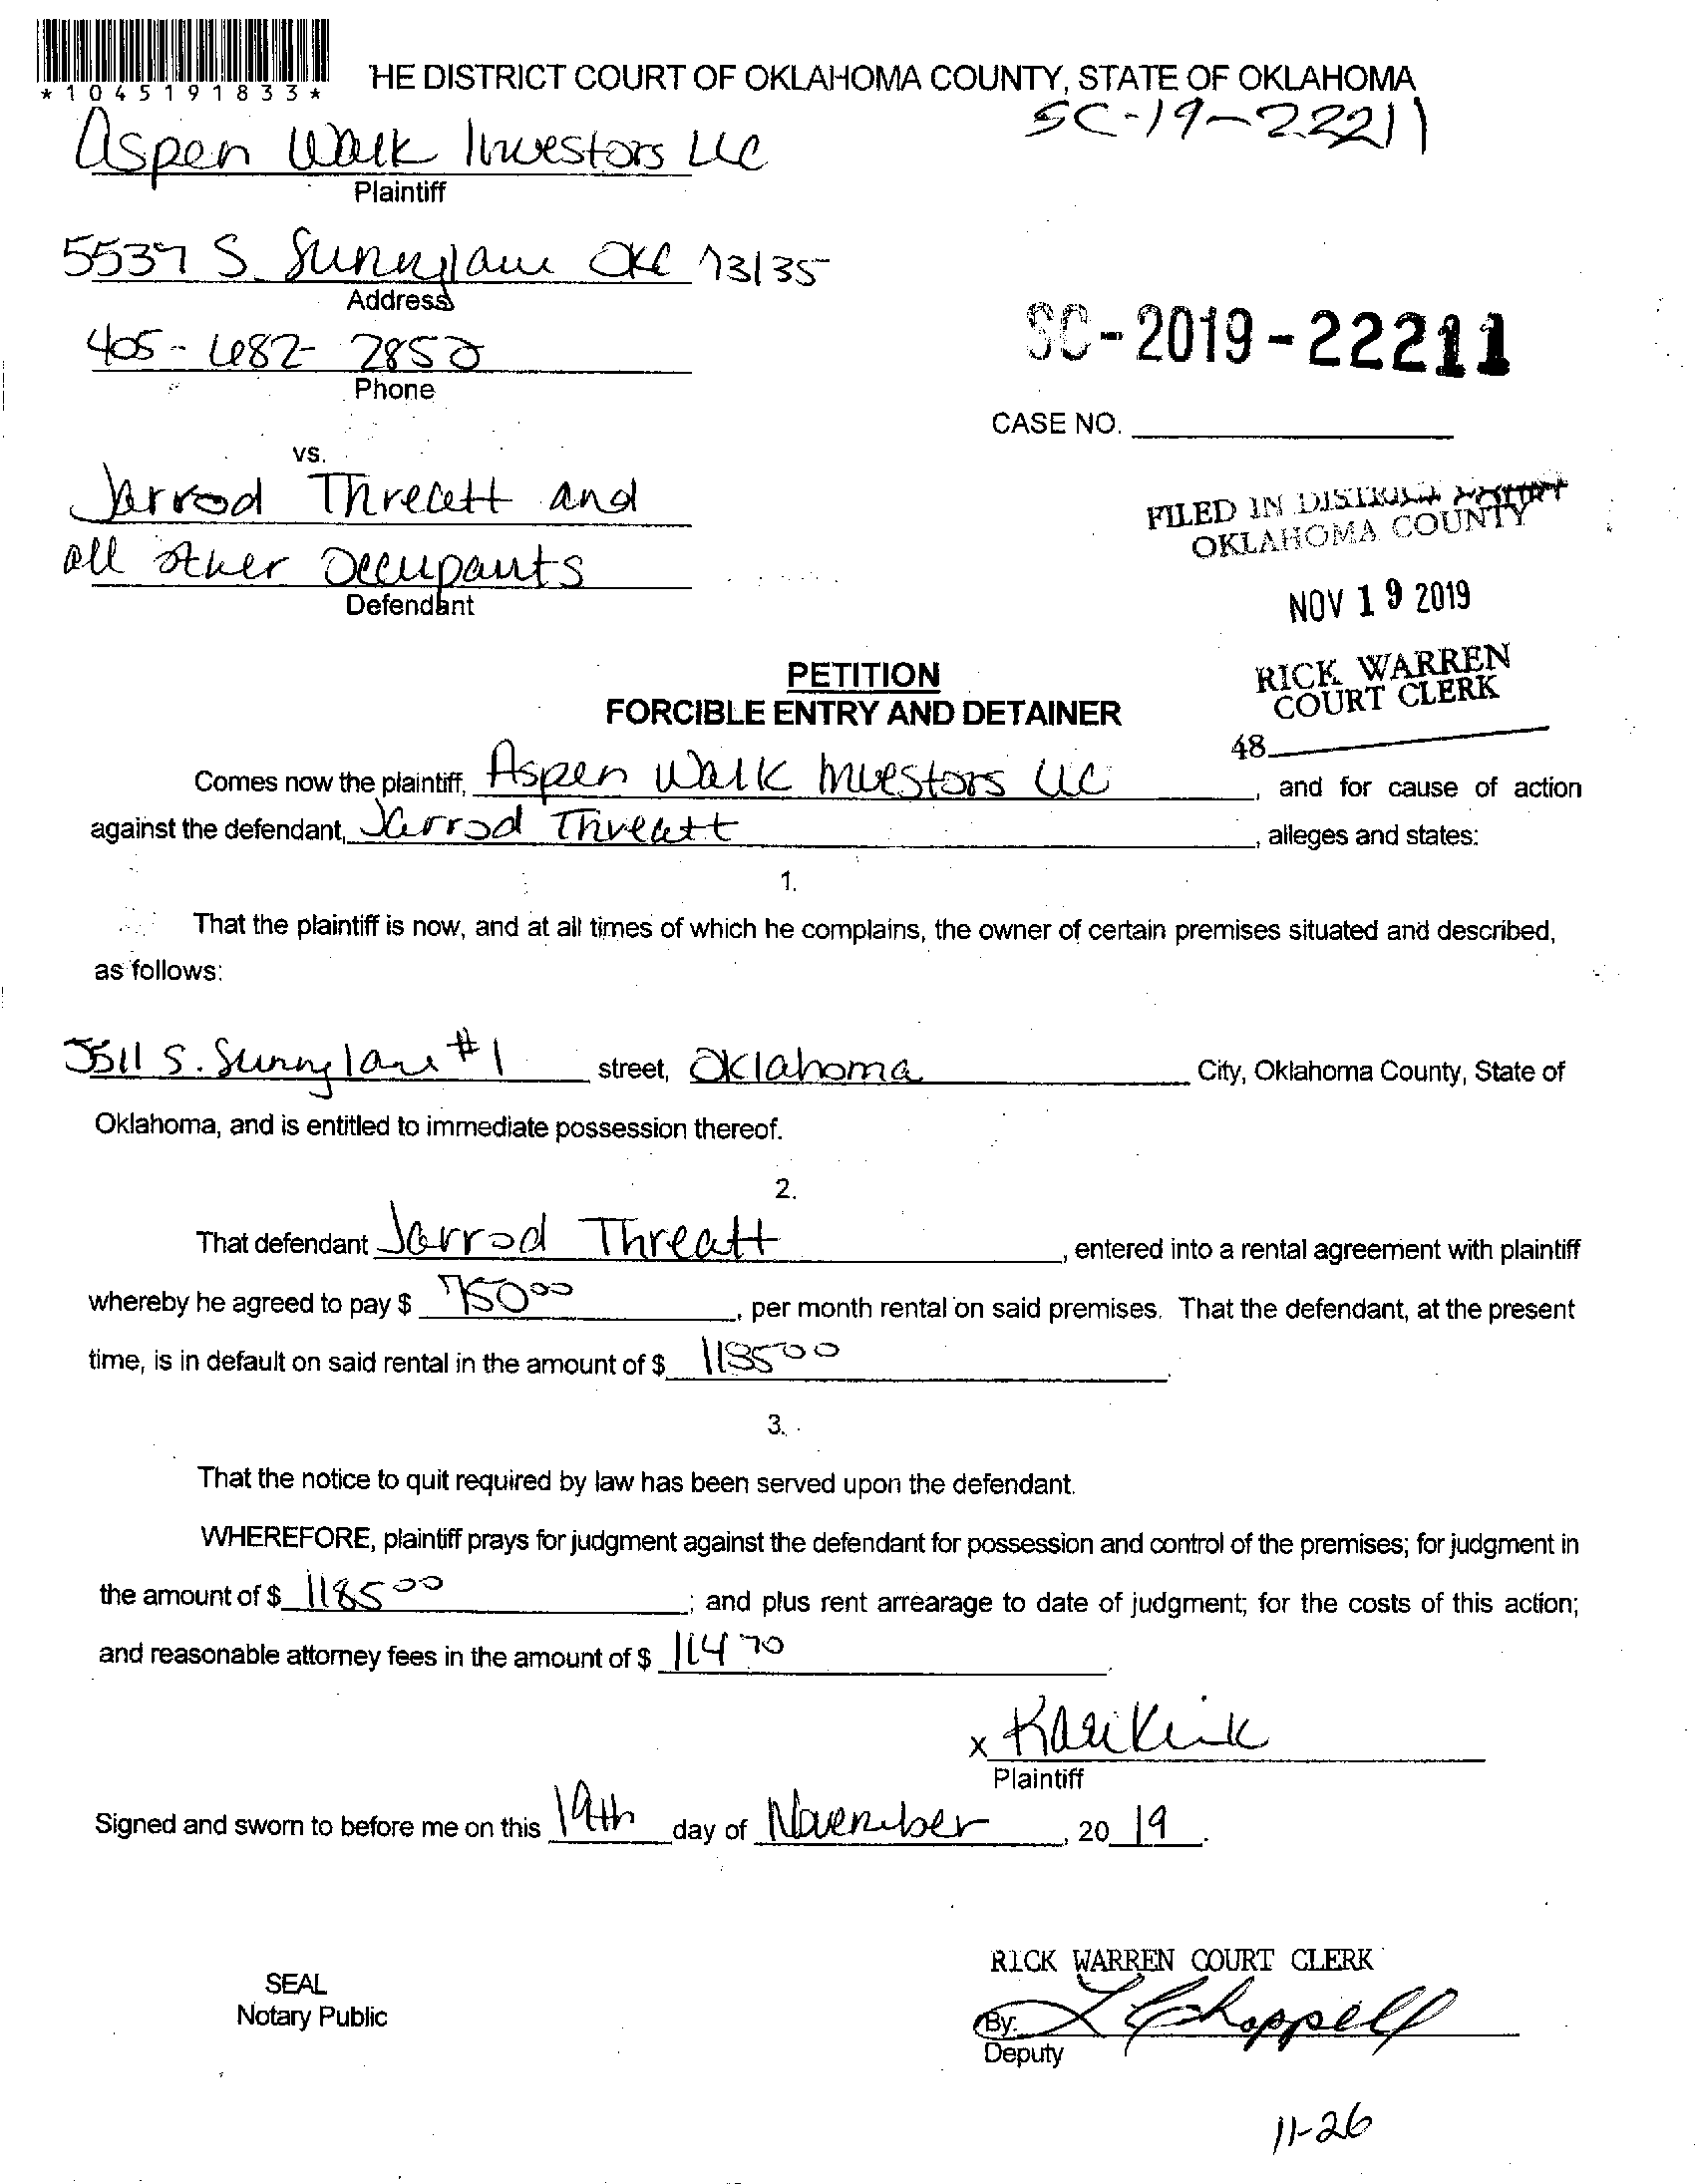 *1045191833*
HE DISTRICT COURT OF OKLAHOMA COUNTY, STATE OF OKLAHOMA
SC-19-22211
Aspen Walk Investors LLC
Plaintiff
5537 S. Sunnylane OKC 73135
Address
405-682-2850
Phone
SC-2019-22211
CASE NO.
vs.
Jarrod Threatt and
all other Occupants
Defendant
FILED IN DISTRICT COURT
OKLAHOMA COUNTY
NOV 19 2019
RICK WARREN
COURT CLERK
48
PETITION
FORCIBLE ENTRY AND DETAINER
Comes now the plaintiff, Aspen Walk Investors LLC, and for cause of action
against the defendant, Jarrod Threatt, alleges and states:
1.
That the plaintiff is now, and at all times of which he complains, the owner of certain premises situated and described,
as follows:
5511 S. Sunnylane #1 street, Oklahoma City, Oklahoma County, State of
Oklahoma, and is entitled to immediate possession thereof.
2.
That defendant Jarrod Threatt, entered into a rental agreement with plaintiff
whereby he agreed to pay $ 750 00, per month rental on said premises. That the defendant, at the present
time, is in default on said rental in the amount of $ 1185 00
3.
That the notice to quit required by law has been served upon the defendant.
WHEREFORE, plaintiff prays for judgment against the defendant for possession and control of the premises; for judgment in
the amount of $ 1185 00; and plus rent arrearage to date of judgment; for the costs of this action;
and reasonable attorney fees in the amount of $ 114 70
x
Plaintiff
Signed and sworn to before me on this 19th day of November, 20 19.
SEAL
Notary Public
RICK WARREN COURT CLERK
By: L Chappell
Deputy
11-26